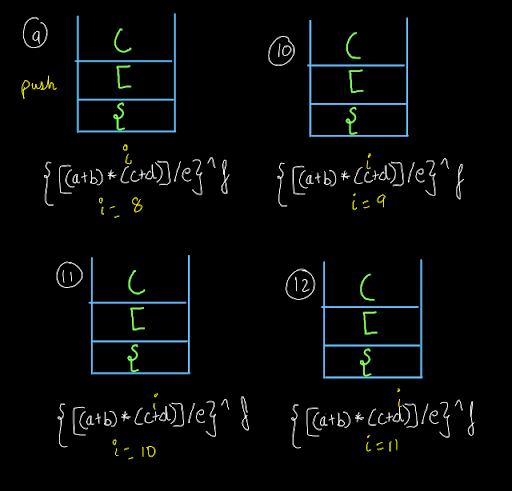 9
(
push
[
{
i
{[(a+b)*(c+d)]/e}^f
i = 8
10
(
[
{
i
{[(a+b)*(c+d)]/e}^f
i = 9
11
(
[
{
i
{[(a+b)*(c+d)]/e}^f
i = 10
12
(
[
{
i
{[(a+b)*(c+d)]/e}^f
i = 11